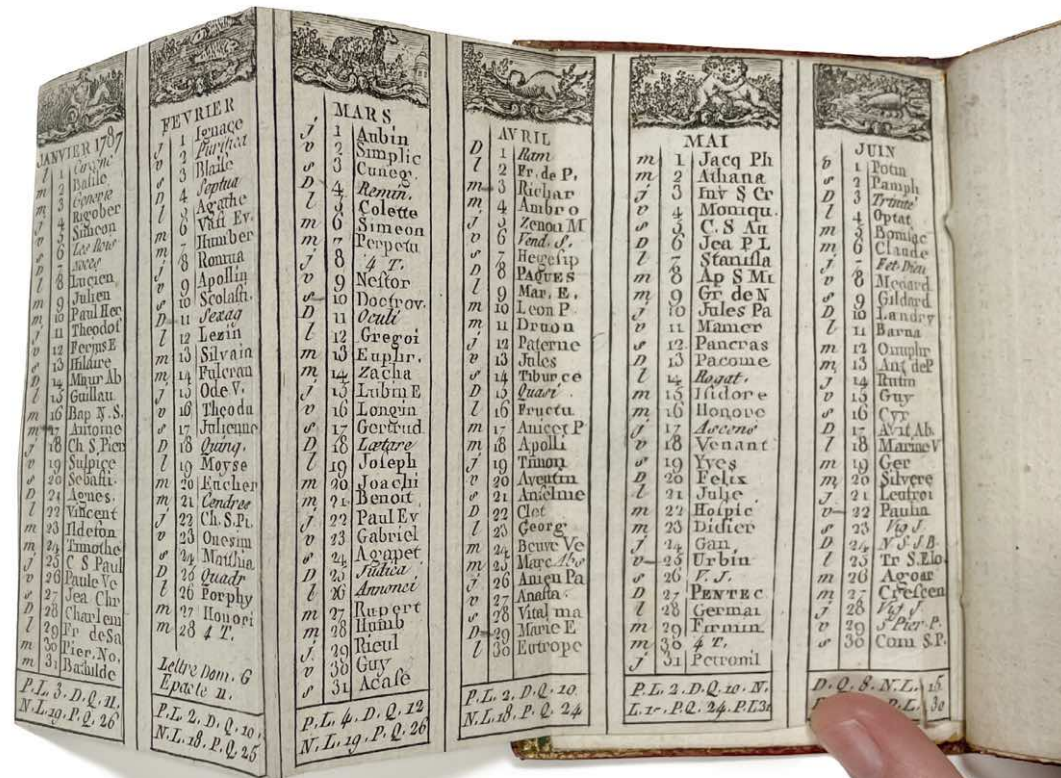 JANVIER 1787
l 1 Circonc
m 2 Basile
m 3 Geneviè
j 4 Rigober
v 5 Simeon
s 6 Les Rois
D 7 Noces
l 8 Lucien
m 9 Julien
m 10 Paul Her
j 11 Theodos
v 12 Ferms E
s 13 Hilaire
D 14 Maur Ab
l 15 Guillau
m 16 Bap N.S.
m 17 Antoine
j 18 Ch S Pier
v 19 Sulpice
s 20 Sebasti.
D 21 Agnes.
l 22 Vincent
m 23 Ildefon
m 24 Timothe
j 25 C S Paul
v 26 Paule Ve
s 27 Jea Chr
D 28 Charlem
l 29 Fr de Sa
m 30 Pier. No.
m 31 Bathilde
P.L. 3. D.Q. 11.
N.L. 19. P.Q. 26
FEVRIER
j 1 Ignace
v 2 Purifica
s 3 Blaise
D 4 Septua
l 5 Agathe
m 6 Vast Ev.
m 7 Humber
j 8 Romua
v 9 Apollin
s 10 Scolasti.
D 11 Sexag
l 12 Lezin
m 13 Silvain
m 14 Fulcran
j 15 Ode V.
v 16 Theodu
s 17 Julienne
D 18 Quinq.
l 19 Moyse
m 20 Eucher
m 21 Cendres
j 22 Ch. S. Pi.
v 23 Onesim
s 24 Mathia
D 25 Quadr
l 26 Porphy
m 27 Honori
m 28 4 T.
Lettre Dom. G
Epacte 11.
P.L. 2. D.Q. 10.
N.L. 18. P.Q. 25
MARS
j 1 Aubin
v 2 Simplic
s 3 Cuneg.
D 4 Remin.
l 5 Colette
m 6 Simeon
m 7 Perpetu
j 8 4 T.
v 9 Nestor
s 10 Doctrov.
D 11 Oculi
l 12 Gregoi
m 13 Euphr.
m 14 Zacha
j 15 Lubin E
v 16 Longin
s 17 Gertrud
D 18 Lætare
l 19 Joseph
m 20 Joachi
m 21 Benoit
j 22 Paul Ev
v 23 Gabriel
s 24 Agapet
D 25 Judica
l 26 Annonci
m 27 Rupert
m 28 Humb
j 29 Ricul
v 30 Guy
s 31 Acase
P.L. 4. D.Q. 12
N.L. 19. P.Q. 26
AVRIL
D 1 Ram
l 2 Fr. de P.
m 3 Richar
m 4 Ambro
j 5 Zenon M
v 6 Vend. S.
s 7 Hegesip
D 8 PAQUES
l 9 Mar. E.
m 10 Leon P.
m 11 Druon
j 12 Paterne
v 13 Jules
s 14 Tiburce
D 15 Quasi
l 16 Fructu
m 17 Anicet P
m 18 Apolli
j 19 Timon
v 20 Aventin
s 21 Anselme
D 22 Clet
l 23 Georg
m 24 Beuve Ve
m 25 Marc Abs
j 26 Amen Pa
v 27 Anasta.
s 28 Vital ma
D 29 Marie E
l 30 Eutrope
P.L. 2. D.Q. 10
N.L. 18. P.Q. 24
MAI
m 1 Jacq Ph
m 2 Athana
j 3 Inv S Cr
v 4 Moniqu.
s 5 C. S Au
D 6 Jea P L
l 7 Stanisla
m 8 Ap S Mi
m 9 Gr de N
j 10 Jules Pa
v 11 Mamer
s 12 Pancras
D 13 Pacome
l 14 Rogat.
m 15 Isidore
m 16 Honore
j 17 Ascens
v 18 Venant
s 19 Yves
D 20 Felix
l 21 Julie
m 22 Hospic
m 23 Didier
j 24 Gan.
v 25 Urbin
s 26 V. J.
D 27 PENTEC
l 28 Germai
m 29 Firmin
m 30 4 T.
j 31 Petronil
P.L. 2. D.Q. 10. N.
L. 17. P.Q. 24. P.L 31
JUIN
v 1 Potin
s 2 Pamph
D 3 Trinité
l 4 Optat
m 5 Bonifac
m 6 Claude
j 7 Fet-Dieu
v 8 Medard
s 9 Gildard
D 10 Landry
l 11 Barna
m 12 Onuphr
m 13 Ant deP
j 14 Rufin
v 15 Guy
s 16 Cyr
D 17 Avit Ab.
l 18 Marine V
m 19 Ger
m 20 Silvere
j 21 Leufroi
v 22 Paulin
s 23 Vig J.
D 24 N.S.J.B.
l 25 Tr S. Elo.
m 26 Agoar
m 27 Crescen
j 28 Vig J.
v 29 S Pier. P.
s 30 Com S.P.
D.Q. 8. N.L. 15
P.L. 30